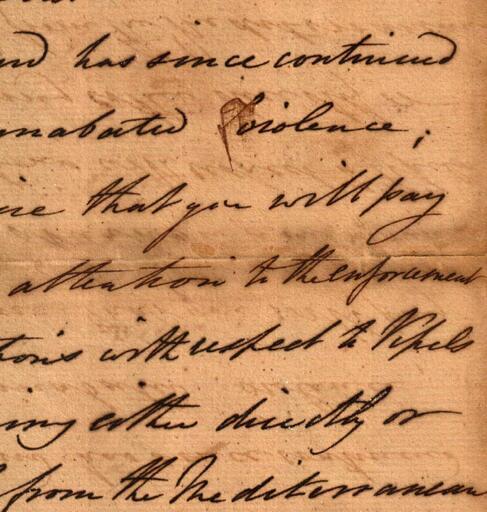 and has since continued
nabated violence;
ire that you will pay
attention to the enforcement
tions with respect to Vessels
ing either directly or
from the Mediterranean